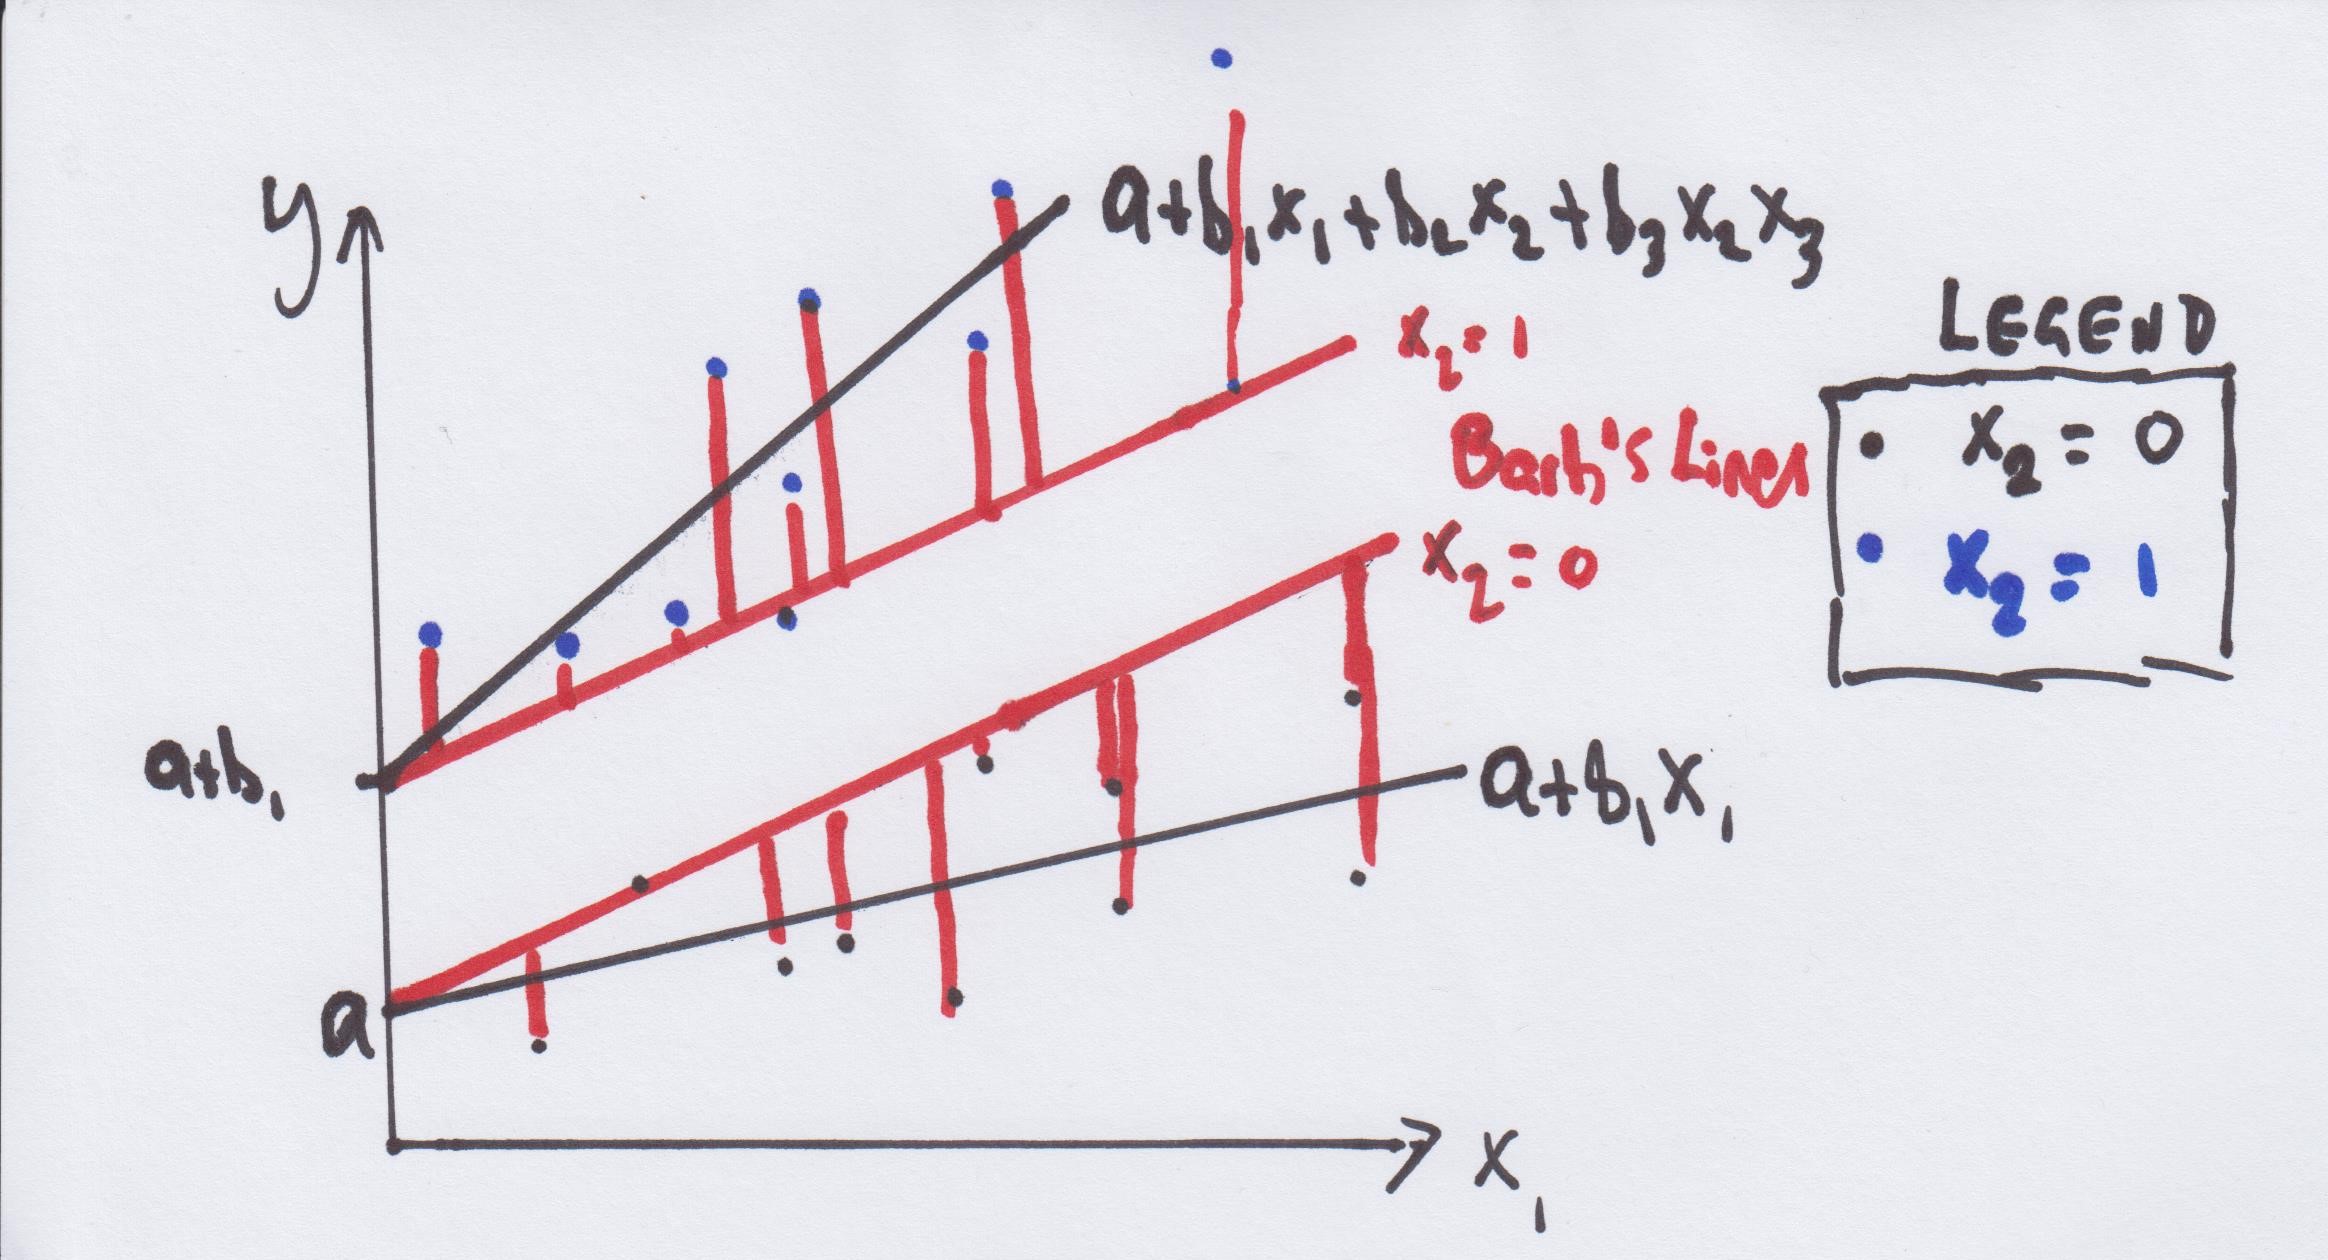 y
a+b₁x₁+b₂x₂+b₃x₂x₃
x₂=1
Barb's Lines
x₂=0
LEGEND
• x₂=0
• x₂=1
a+b₁
a+b₁x₁
a
x₁